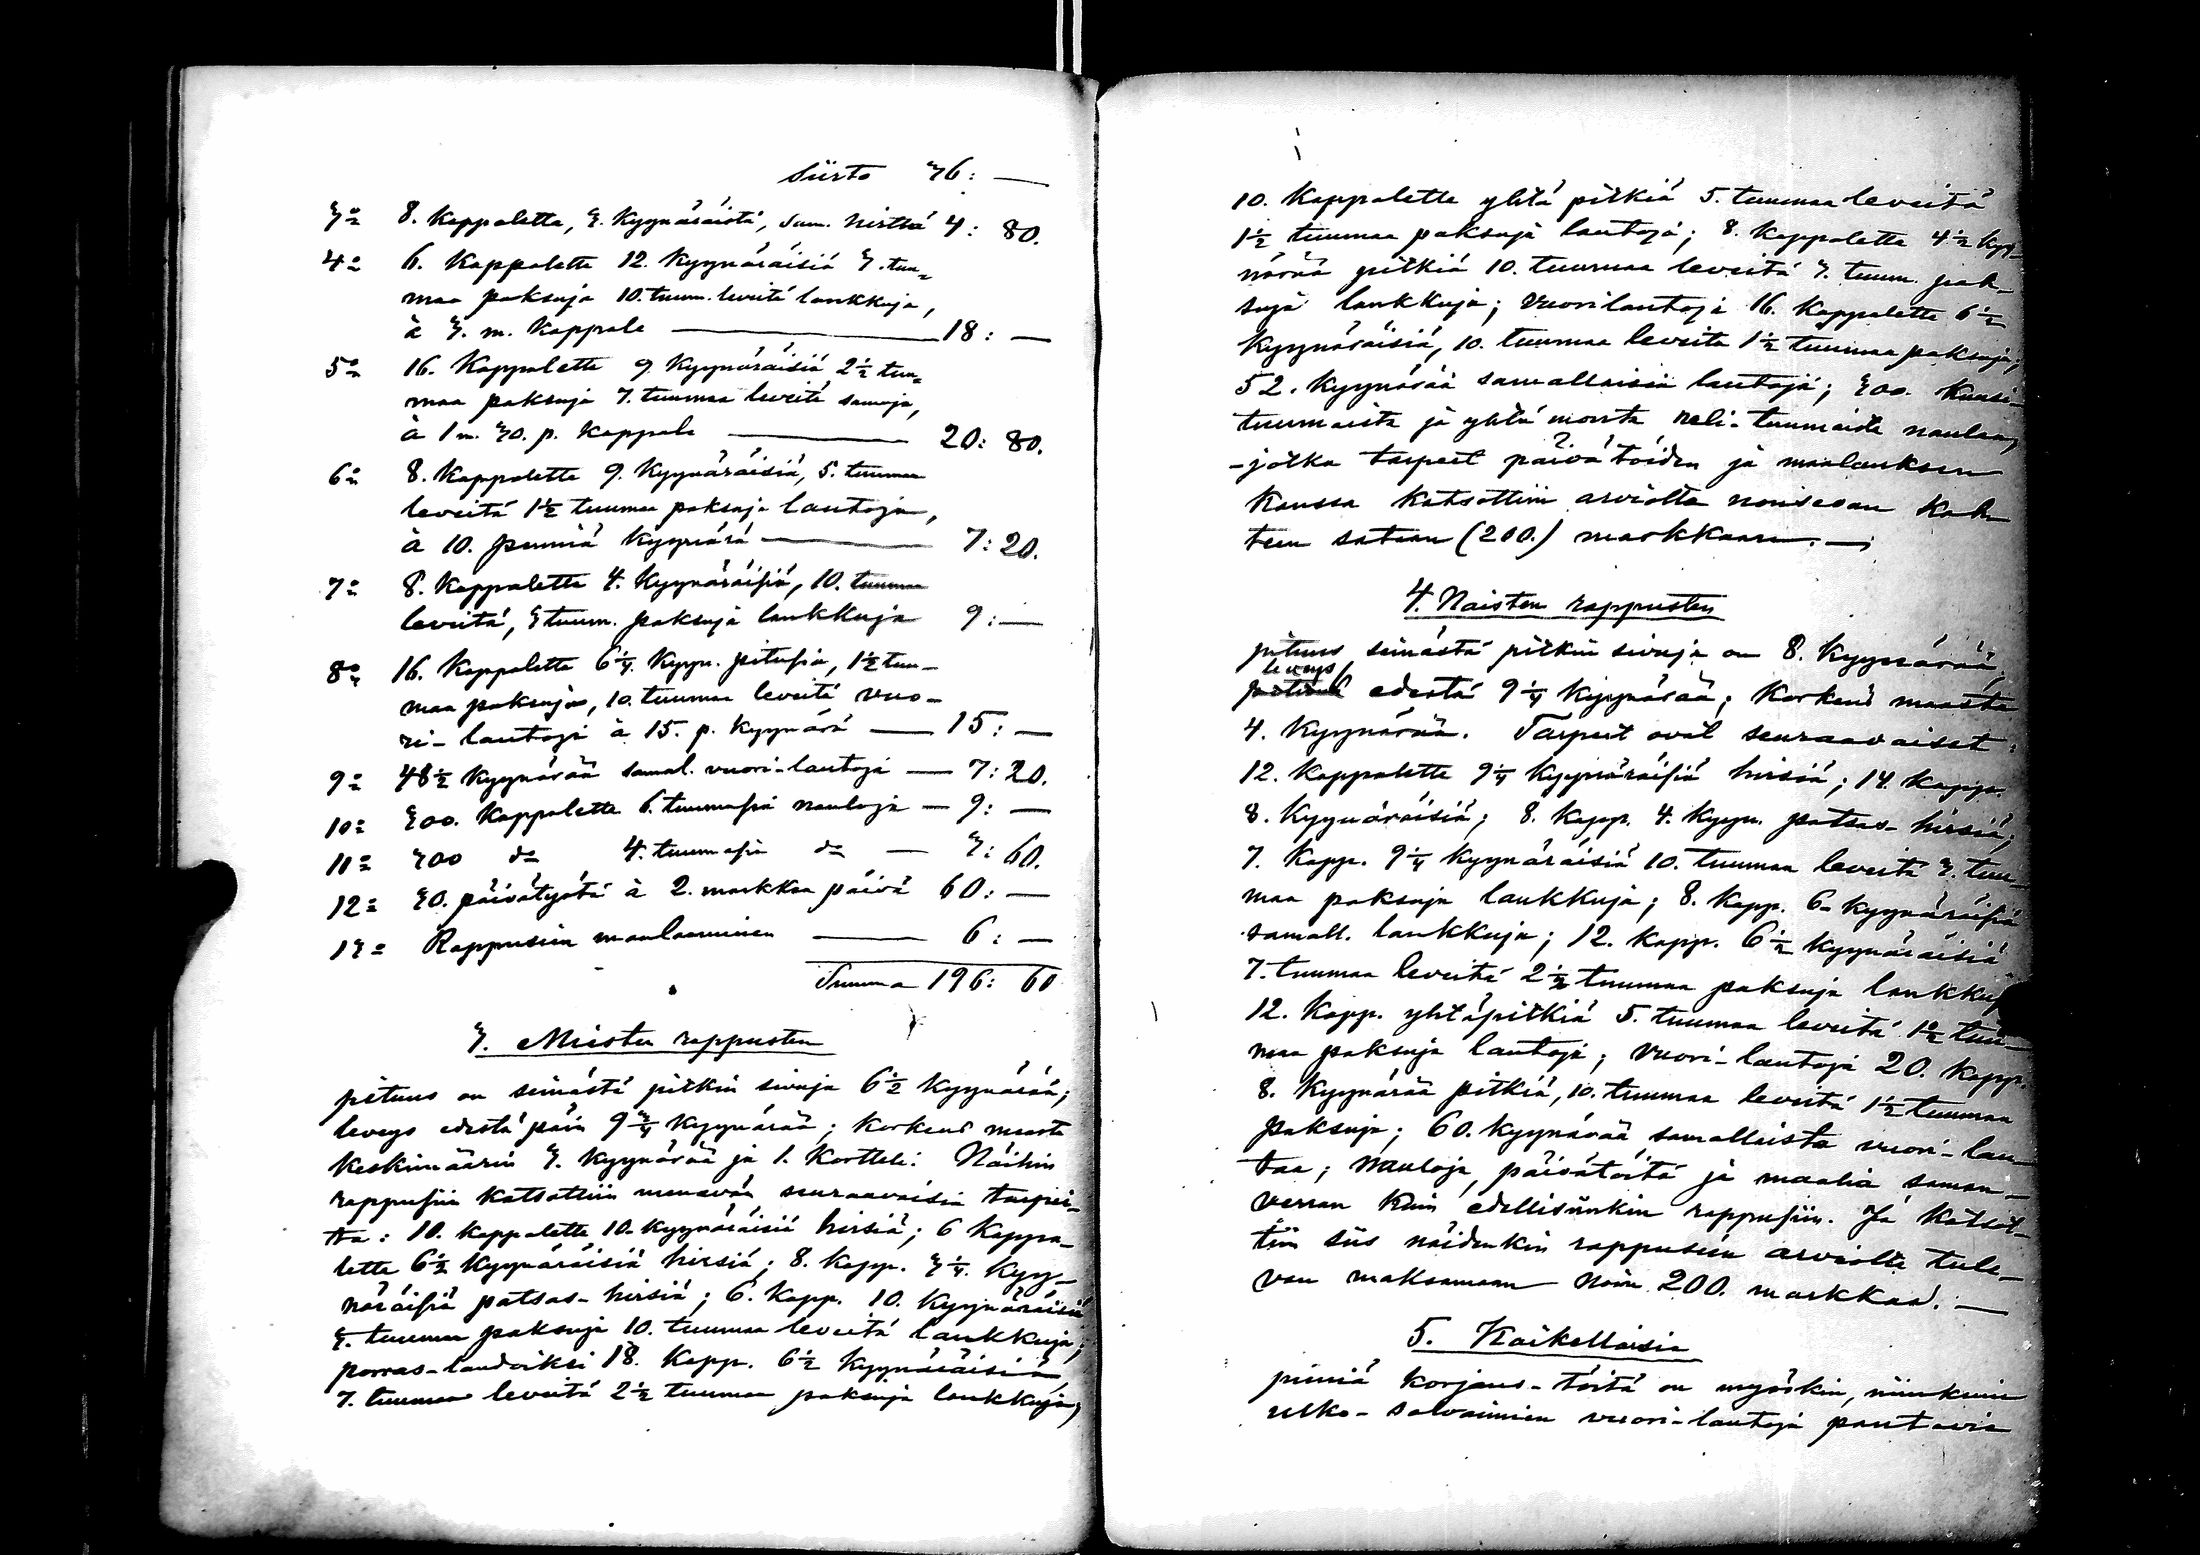 Siirto 36: —
3:o 8. Kappaletta, 3. Kyynäräistä, sam. hirttä 4: 80.
4:o 6. Kappaletta 12. Kyynäräisiä 3. tuu=
maa paksuja 10. tuum. leveitä lankkuja,
à 3. m. Kappale — 18: —
5:o 16. Kappaletta 9. Kyynäräisiä 2½ tuu=
maa paksuja 7. tuumaa leveitä samoja,
à 1 m. 30. p. Kappale — 20: 80.
6:o 8. Kappaletta 9. Kyynäräisiä, 5. tuumaa
leveitä 1½ tuumaa paksuja lautoja,
à 10. penniä Kyynärä — 7: 20.
7:o 8. Kappaletta 4. Kyynäräisiä, 10. tuumaa
leveitä, 3 tuum. paksuja lankkuja 9: —
8:o 16. Kappaletta 6¼. Kyyn. pituisia, 1½ tuu-
maa paksuja, 10. tuumaa leveitä vuo-
ri-lautoja à 15. p. Kyynärä — 15: —
9:o 48½ Kyynärää samal. vuori-lautoja — 7: 20.
10:o 300. Kappaletta 6. tuumasia nauloja — 9: —
11:o 300 d:o 4. tuumasia d:o — 3: 60.
12:o 30. päivätyötä à 2. markkaa päivä 60: —
13:o Rappusien maalaaminen — 6: —
Summa 196: 60
3. Miesten rappusten
pituus on seinästä pitkin sivuja 6½ Kyynärää;
leveys edestä päin 9¾ Kyynärää; Korkeus maasta
Keskimäärin 3. Kyynärää ja 1. Kortteli. Näihin
rappusiin Katsottiin menevän seuraavaisia tarpei-
ta: 10. Kappaletta 10. Kyynäräisiä hirsiä; 6 Kappa-
letta 6½ Kyynäräisiä hirsiä; 8. Kapp. 3¼. Kyy-
näräisiä patsas-hirsiä; 6. Kapp. 10. Kyynäräisiä
3. tuumaa paksuja 10. tuumaa leveitä lankkuja;
porras-laudoiksi 18. Kapp. 6½ Kyynäräisiä
7. tuumaa leveitä 2½ tuumaa paksuja lankkuja,
10. Kappaletta yhtä pitkiä 5. tuumaa leveitä
1½ tuumaa paksuja lautoja; 8. Kappaletta 4½ Kyy-
närää pitkiä 10. tuumaa leveitä 3. tuum. pak-
suja lankkuja; vuorilautoja 16. Kappaletta 6½
Kyynäräisiä, 10. tuumaa leveitä 1½ tuumaa paksuja;
52. Kyynärää samallaisia lautoja; 300. Kuusi-
tuumaista ja yhtä monta neli-tuumaista naulaa,
-jotka tarpeet päivätöiden ja maalauksen
Kanssa Katsottiin arviolta nousevan Kah
teen sataan (200.) markkaan. —
4. Naisten rappusten
pituus seinästä pitkin sivuja on 8. Kyynärää,
leveys edestä 9¼ Kyynärää; Korkeus maasta
4. Kyynärää. Tarpeet ovat seuraavaiset:
12. Kappaletta 9¼ Kyynäräisiä hirsiä; 14. Kapp.
8. Kyynäräisiä; 8. Kapp. 4. Kyyn. patsas-hirsiä;
7. Kapp. 9¼ Kyynäräisiä 10. tuumaa leveitä 3. tuu-
maa paksuja lankkuja; 8. Kapp. 6-Kyynäräisiä
samall. lankkuja; 12. Kapp. 6½ Kyynäräisiä
7. tuumaa leveitä 2½ tuumaa paksuja lankkuja
12. Kapp. yhtäpitkiä 5. tuumaa leveitä 1½ tuu-
maa paksuja lautoja; vuori-lautoja 20. Kapp.
8. Kyynärää pitkiä, 10. tuumaa leveitä 1½ tuumaa
paksuja; 60. Kyynärää samallaista vuori-lau-
taa; nauloja, päivätöitä ja maalia saman-
verran Kuin edellisiinkin rappusiin. Ja Katsot-
tiin siis näidenkin rappusien arviolta tule-
van maksamaan noin 200. markkaa. —
5. Kaikellaisia
pieniä Korjaus-töitä on myöskin, niinkuin
ulko-salvaimien vuori-lautoja